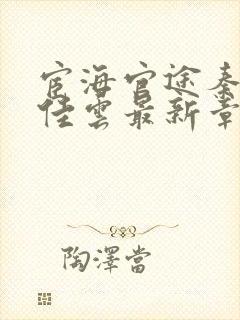 宦海官途秦
佳雲最新章
陶澤當